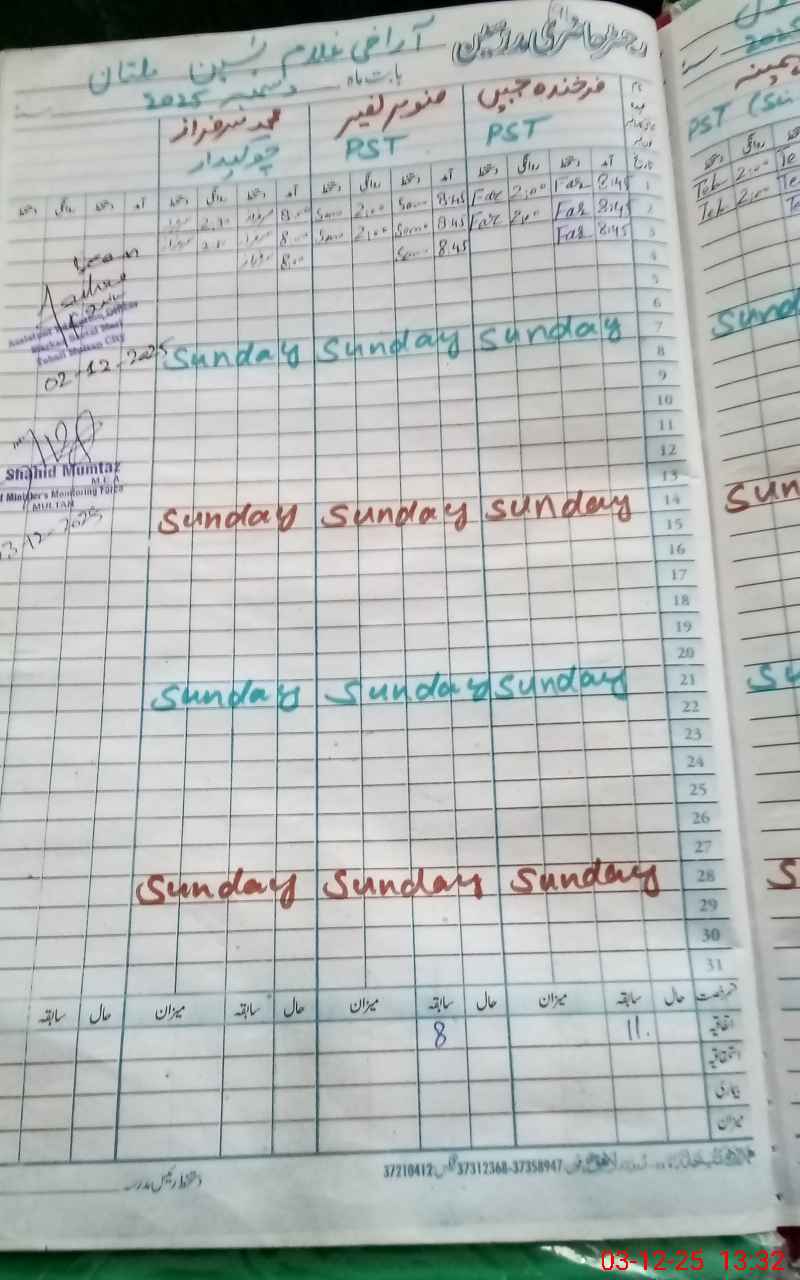 رجسٹر حاضری مدرسین
آراضی غلام یٰسین ملتان
بابت ماہ دسمبر 2025
فرخندہ جبیں
PST
محمد سرفراز
چوکیدار
PST
تاریخ آمد دستخط روانگی دستخط آمد دستخط روانگی دستخط آمد دستخط روانگی دستخط آمد دستخط روانگی دستخط
1 8.45 Far 2:00 Far 8.45 Sam 2:00 Sam 8:00
2 8.45 Far 2:00 Far 8.45 Sam 2:00 Sam 8:00
3 8.45 Far 8.45 Sam 8:00
4
5
6
7 Sunday Sunday Sunday
8
9
10
11
12
13
14 Sunday Sunday Sunday
15
16
17
18
19
20
21 Sunday Sunday Sunday
22
23
24
25
26
27
28 Sunday Sunday Sunday
29
30
31
02-12-2025
Shahid Mumtaz
M.E.A
Minister's Monitoring Force
MULTAN
3-12-2025
رخصت حال سابقہ میزان حال سابقہ میزان حال سابقہ میزان حال سابقہ
اتفاقیہ 11. 8
استحقاقیہ
بیماری
میزان
37210412 37312368-37358947
دستخط رئیس مدرسہ
2025
PST
Teh 2:00 Te
Teh 2:00 Te
Te
Sund
Sun
Su
S
03-12-25 13:32